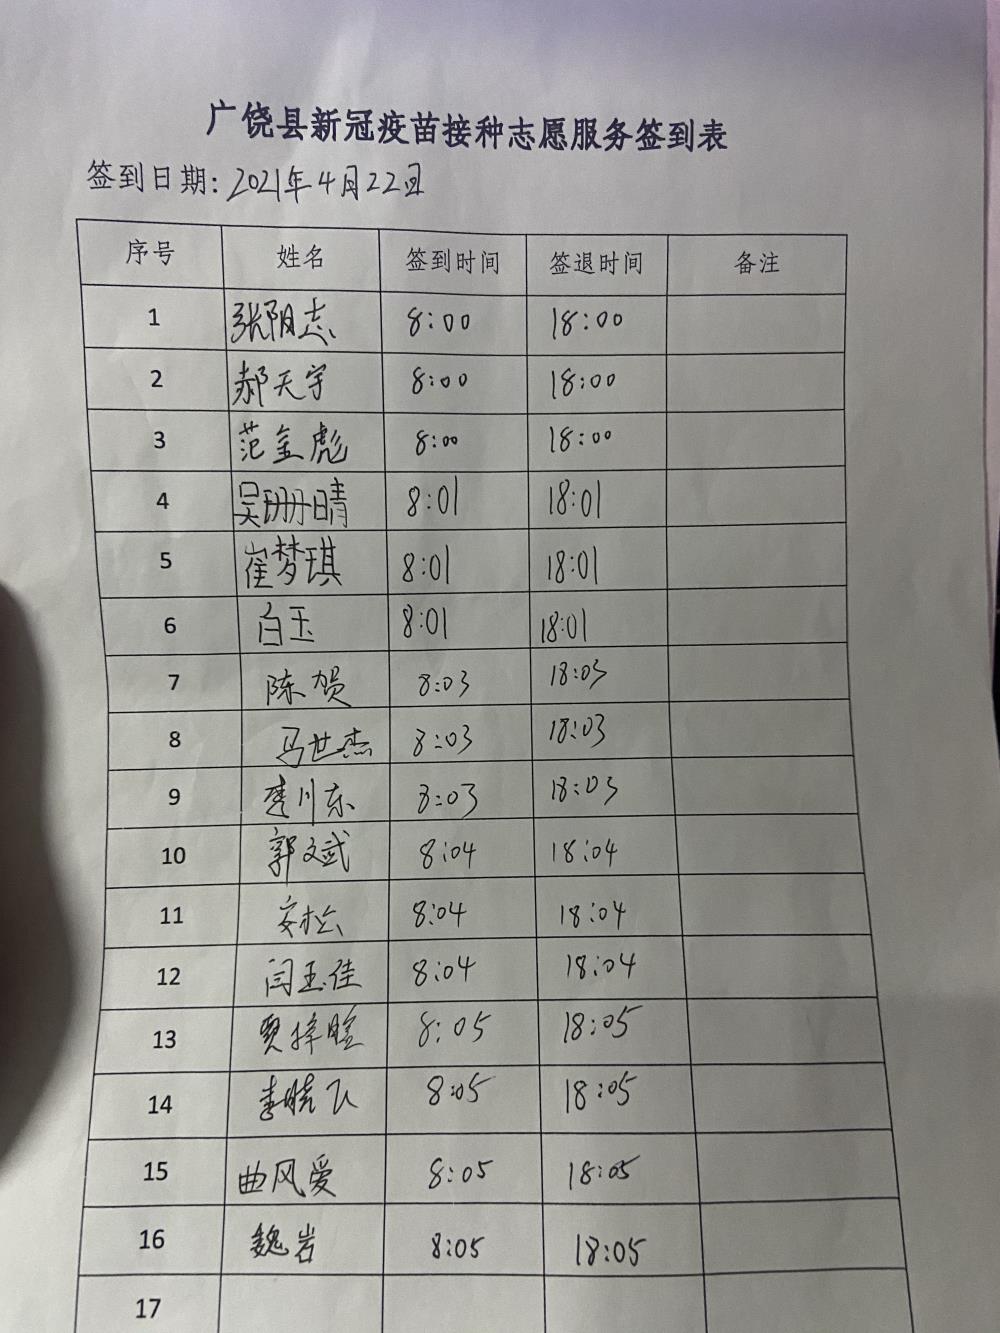 广饶县新冠疫苗接种志愿服务签到表
签到日期: 2021年4月22日
序号 姓名 签到时间 签退时间 备注
1 张阳志 8:00 18:00
2 郝天宇 8:00 18:00
3 范金彪 8:00 18:00
4 吴珊晴 8:01 18:01
5 崔梦琪 8:01 18:01
6 白玉 8:01 18:01
7 陈贺 8:03 18:03
8 马世杰 8:03 18:03
9 李川东 8:03 18:03
10 郭文斌 8:04 18:04
11 安松 8:04 18:04
12 闫玉佳 8:04 18:04
13 贾梓暄 8:05 18:05
14 李晓飞 8:05 18:05
15 曲风爱 8:05 18:05
16 魏岩 8:05 18:05
17